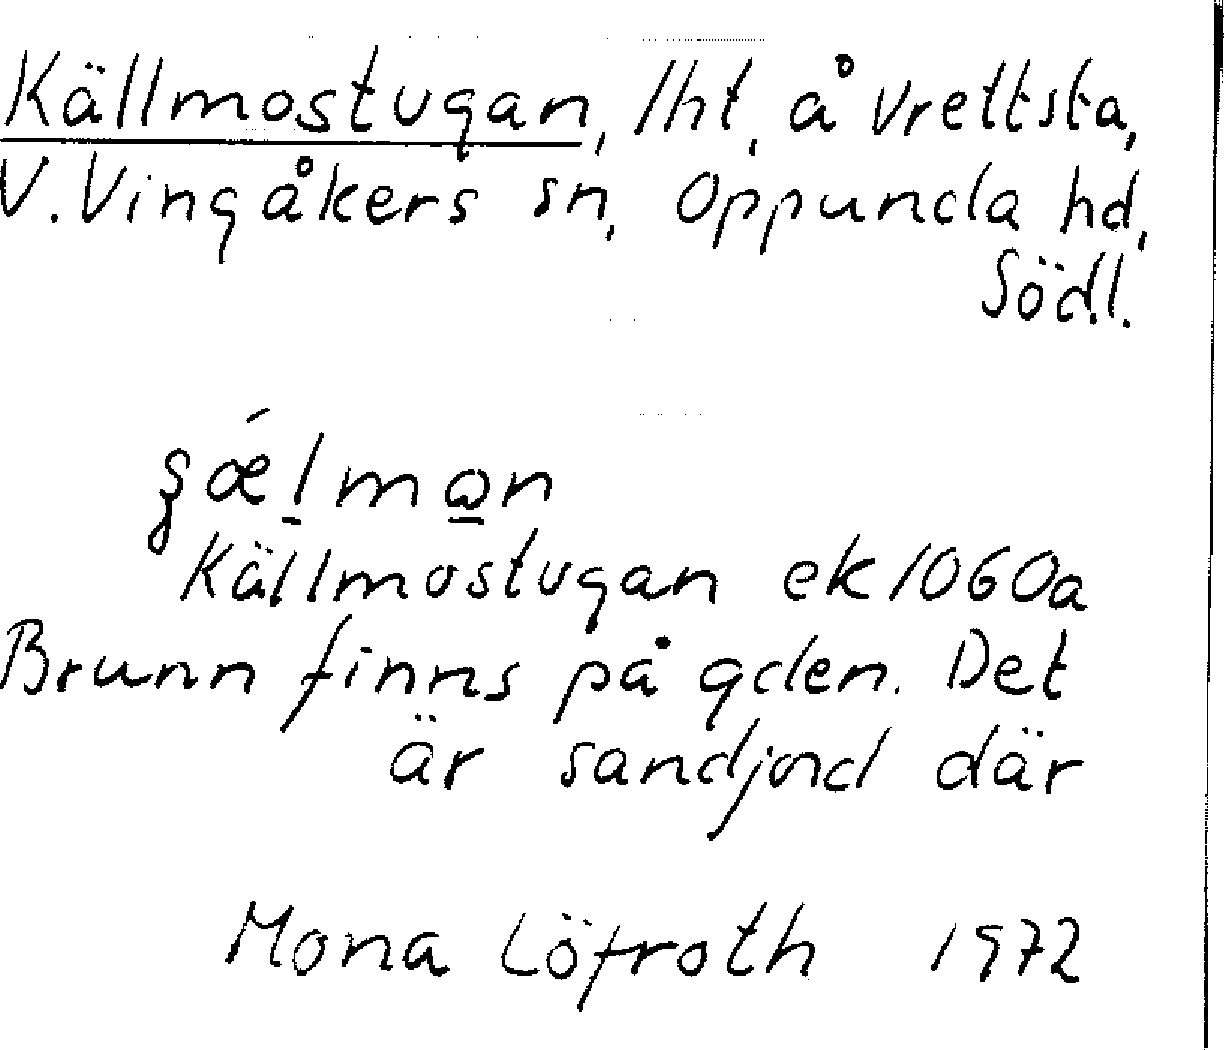 Källmostugan, lht, å Vrettsta,
V. Vingåkers sn, Oppunda hd,
Södl.
Källmostugan ek 1060a
Brunn finns på gden. Det
är sandjord där
Mona Löfroth 1972